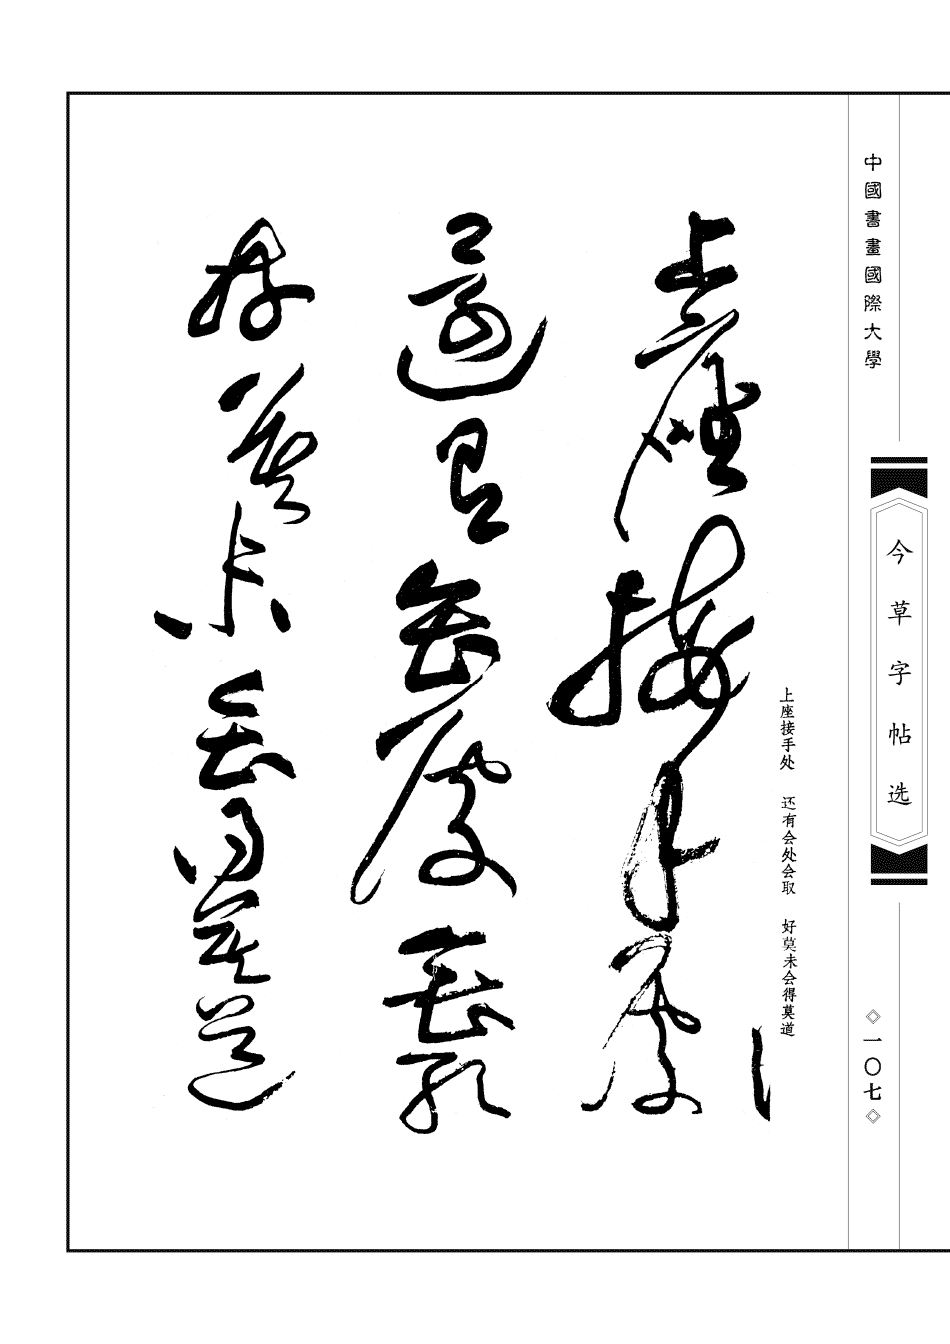 中國書畫國際大學
今草字帖选
◇一〇七◇
上座接手处 还有会处会取 好莫未会得莫道
上座接手處
還有会處会取
好莫未会得莫道